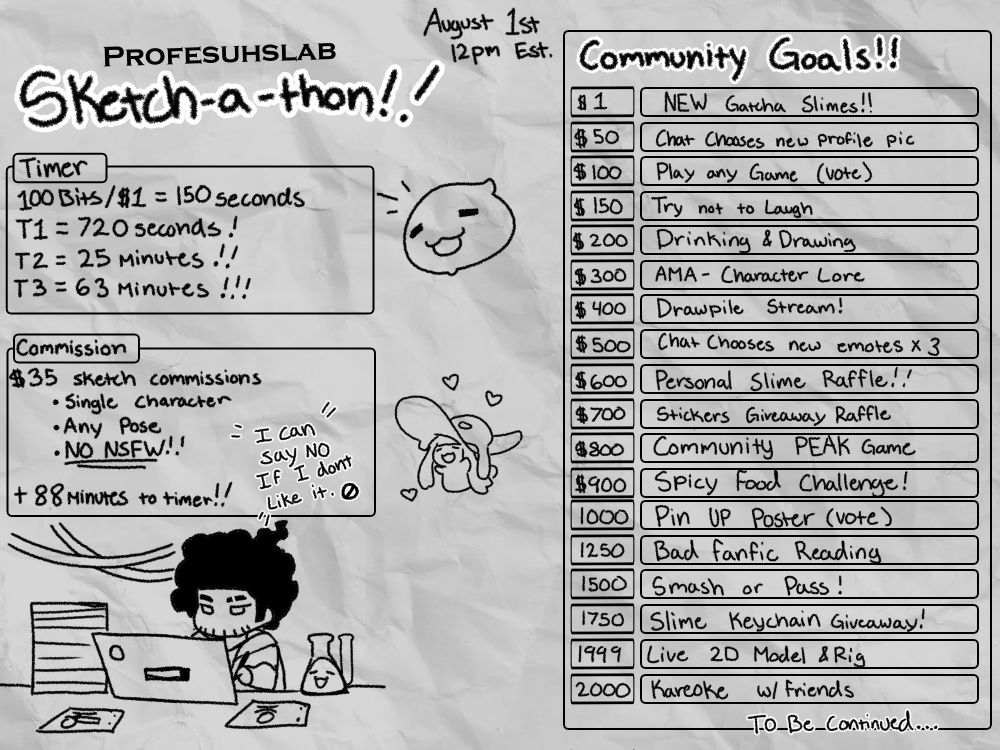 August 1st
12pm Est.
PROFESUHSLAB
Sketch-a-thon!!
Timer
100 Bits/$1 = 150 seconds
T1 = 720 seconds!
T2 = 25 Minutes !!
T3 = 63 Minutes !!!
Commission
$35 sketch commissions
• Single character
• Any Pose
• NO NSFW!!
+ 88 Minutes to timer!!
I can
say NO
If I dont
Like it.
Community Goals!!
$1 NEW Gatcha Slimes!!
$50 Chat Chooses new profile pic
$100 Play any Game (vote)
$150 Try not to Laugh
$200 Drinking & Drawing
$300 AMA - Character Lore
$400 Drawpile Stream!
$500 Chat Chooses new emotes x 3
$600 Personal Slime Raffle!!
$700 Stickers Giveaway Raffle
$800 Community PEAK Game
$900 Spicy food Challenge!
1000 Pin UP Poster (vote)
1250 Bad fanfic Reading
1500 Smash or Pass!
1750 Slime Keychain Giveaway!
1999 Live 2D Model & Rig
2000 Kareoke w/ friends
To Be Continued....